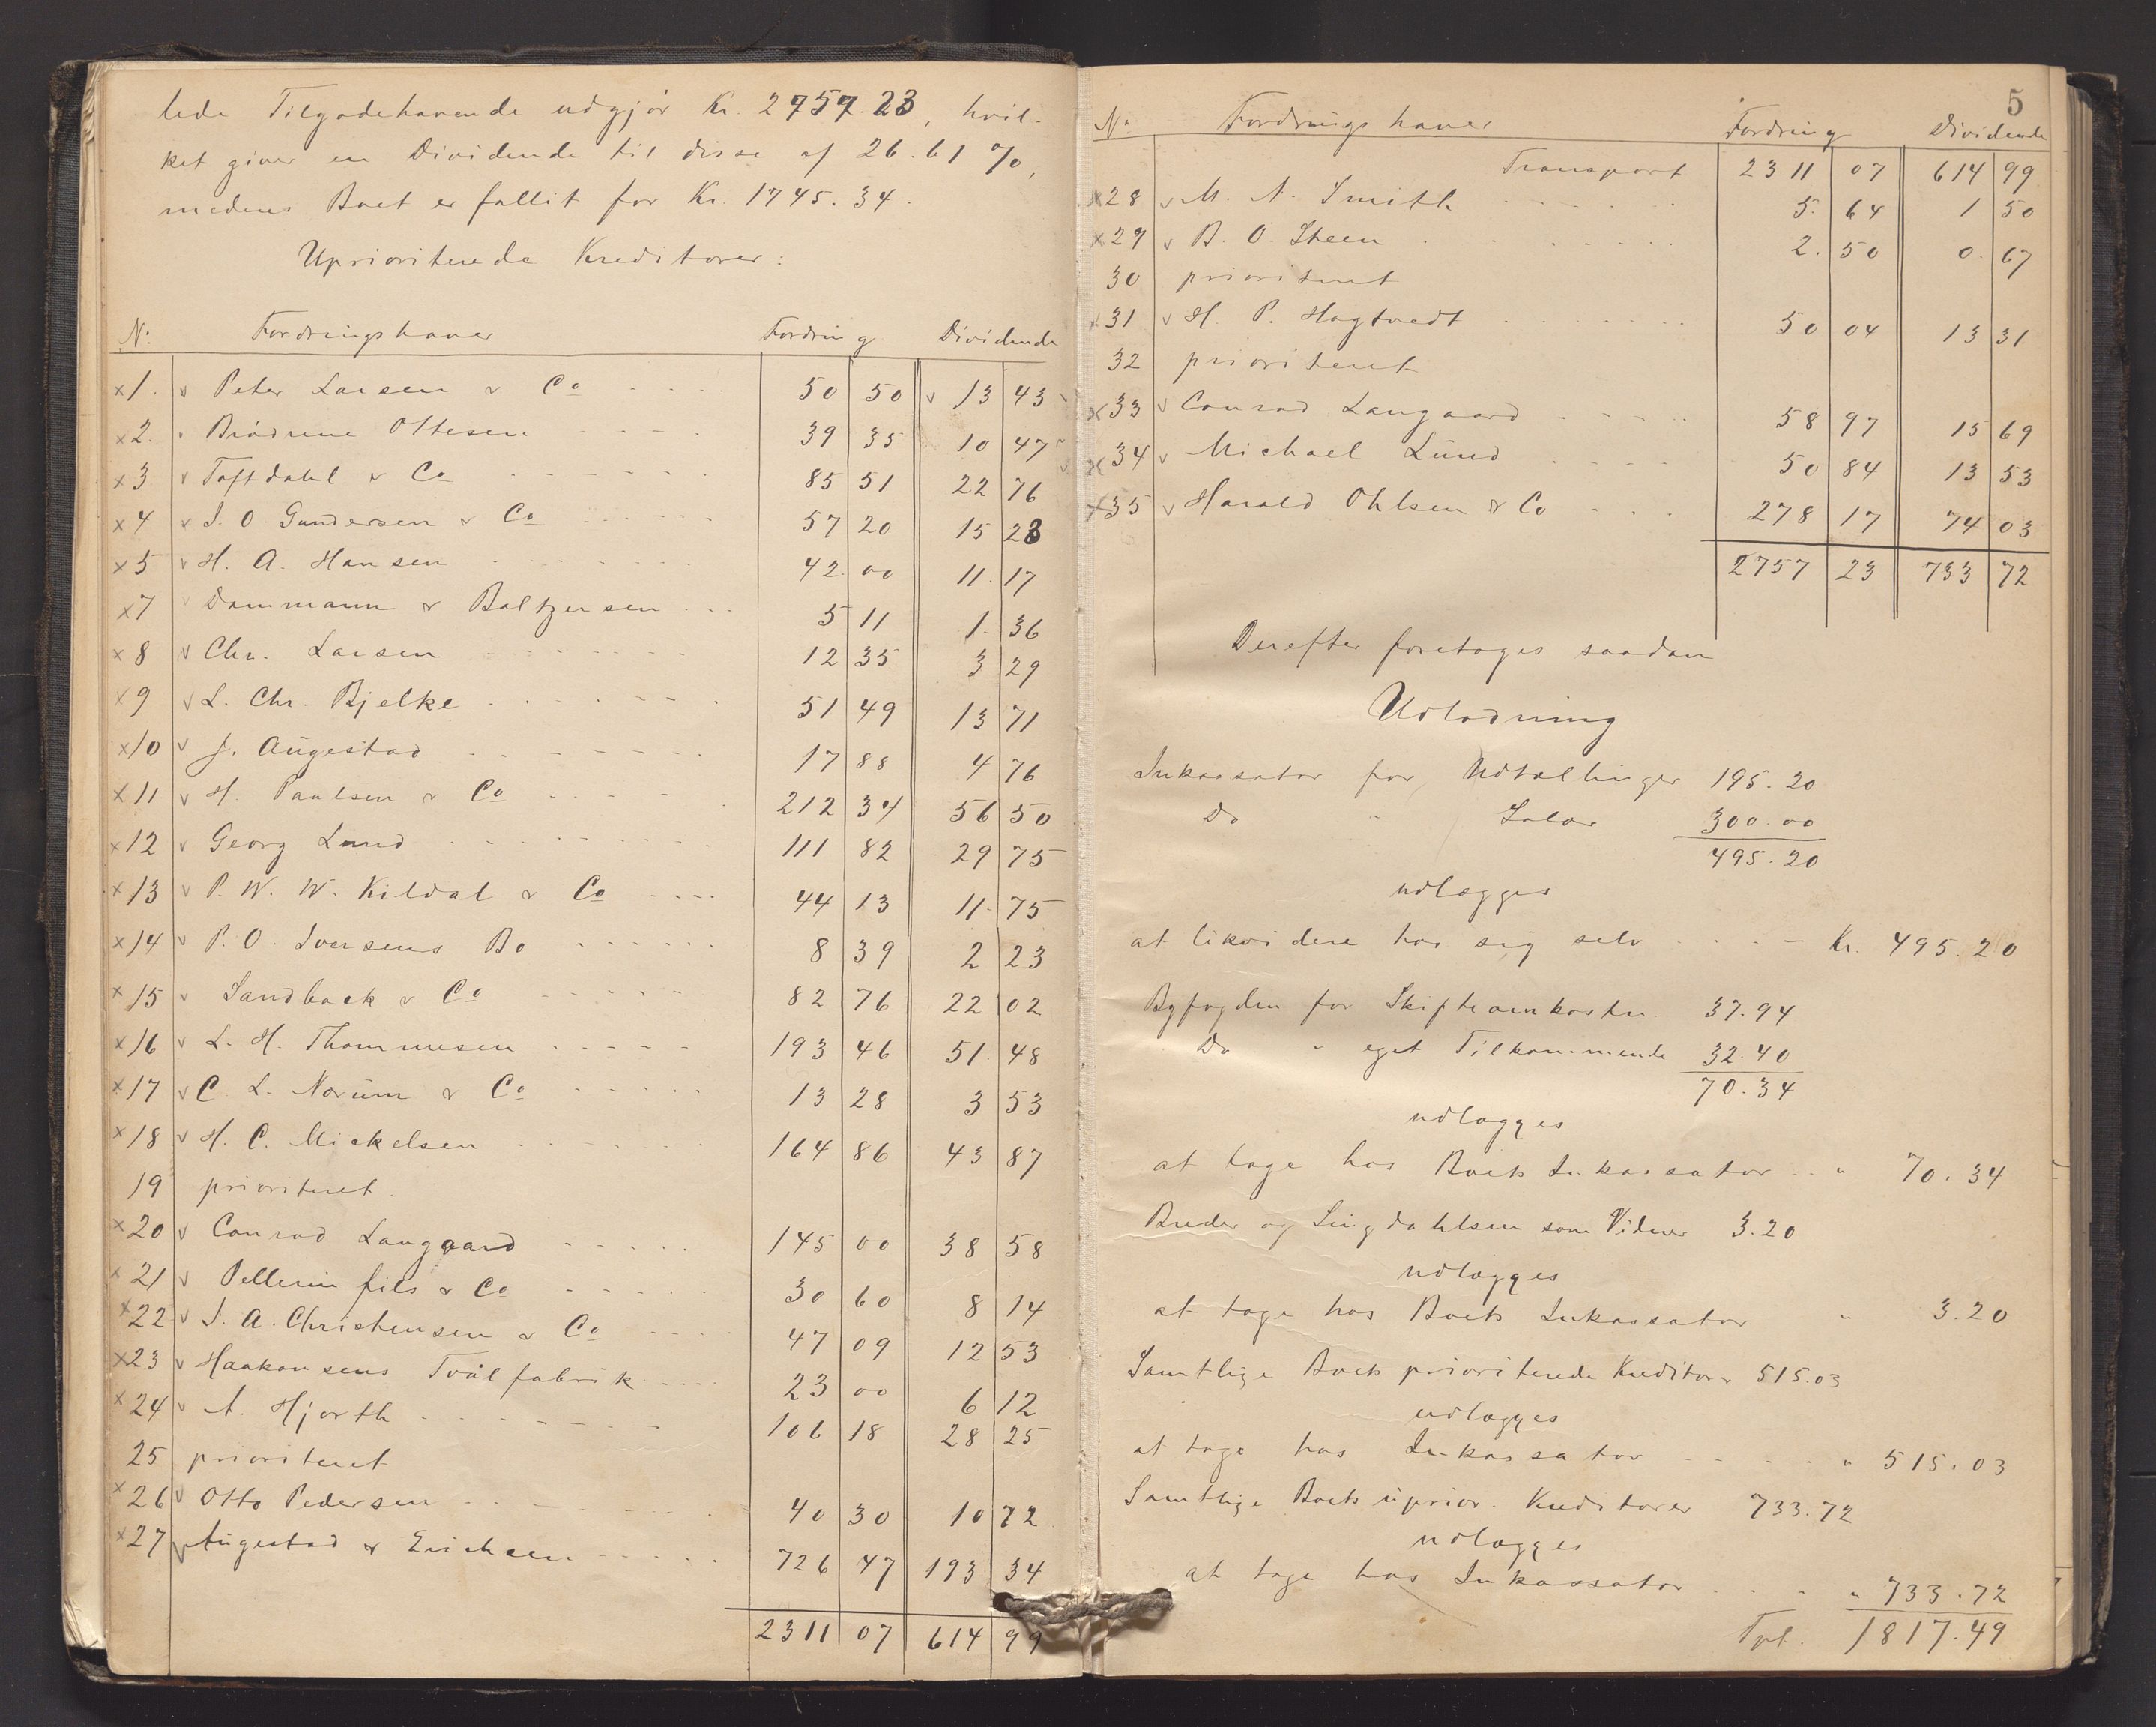 lede Tilgodehavende udgjør Kr. 2757.23, hvil-
ket giver en Dividende til disse af 26.61 %,
medens Boet er fallit for Kr. 1745.34.
Uprioriterede Kreditorer:
No: Fordringshaver Fordring Dividende
x1. v Peter Larsen & Co 50 50 v 13 43
x2. Brødrene Ottesen 39 35 10 47
x3 v Toftdahl & Co 85 51 22 76
x4 v J. O. Gundersen & Co 57 20 15 23
x5 v H. A. Hansen 42 00 11 17
x7 v Dammann & Baltzersen 5 11 1 36
x8 v Chr. Larsen 12 35 3 29
x9 v L. Chr. Bjelke 51 49 13 71
x10 v J. Augestad 17 88 4 76
x11 v H. Paulsen & Co 212 34 56 50
x12 v Georg Lund 111 82 29 75
x13 v P. W. W. Kildal & Co 44 13 11 75
x14 v P. O. Iversens Bo 8 39 2 23
x15 v Sandbeck & Co 82 76 22 02
x16 v L. H. Thommesen 193 46 51 48
x17 v C. L. Norum & Co 13 28 3 53
x18 v H. C. Mickelsen 164 86 43 87
19 prioriteret
x20 v Conrad Langgaard 145 00 38 58
x21 v Pellerin fils & Co 30 60 8 14
x22 v J. A. Christensen & Co 47 09 12 53
x23 v Haakonsens Tvålfabrik 23 00 6 12
x24 v A. Hjorth 106 18 28 25
25 prioriteret
x26 v Otto Pedersen 40 30 10 72
x27 v Augestad & Erichsen 726 47 193 34
2311 07 614 99
5
No Fordringshaver Fordring Dividende
Transport 2311 07 614 99
x28 v M. A. Smith 5. 64 1 50
x29 v B. O. Steen 2. 50 0. 67
30 prioriteret
x31 v H. P. Hagtvedt 50 04 13 31
32 prioriteret
x33 v Conrad Langaard 58 97 15 69
x34 v Michael Lund 50 84 13 53
x35 v Harald Ohlsen & Co 278 17 74 03
2757 23 733 72
Derefter foretages saadan
Udlodning
Inkassator for Udtællinger 195.20
Do " Salær 300.00
495.20
udlægges
at likvidere hos sig selv Kr. 495.20
Byfogden for Skifteomkostn. 37.94
Do " eget Tilkommende 32.40
70.34
udlægges
at tage hos Boets Inkassator " 70.34
og som Vidner 3.20
udlægges
at tage hos Boets Inkassator " 3.20
Samtlige Boets prioriterede Kreditorer 515.03
udlægges
at tage hos Inkassator " 515.03
Samtlige Boets uprior. Kreditorer 733.72
udlægges
at tage hos Inkassator " 733.72
Tpt. 1817.49